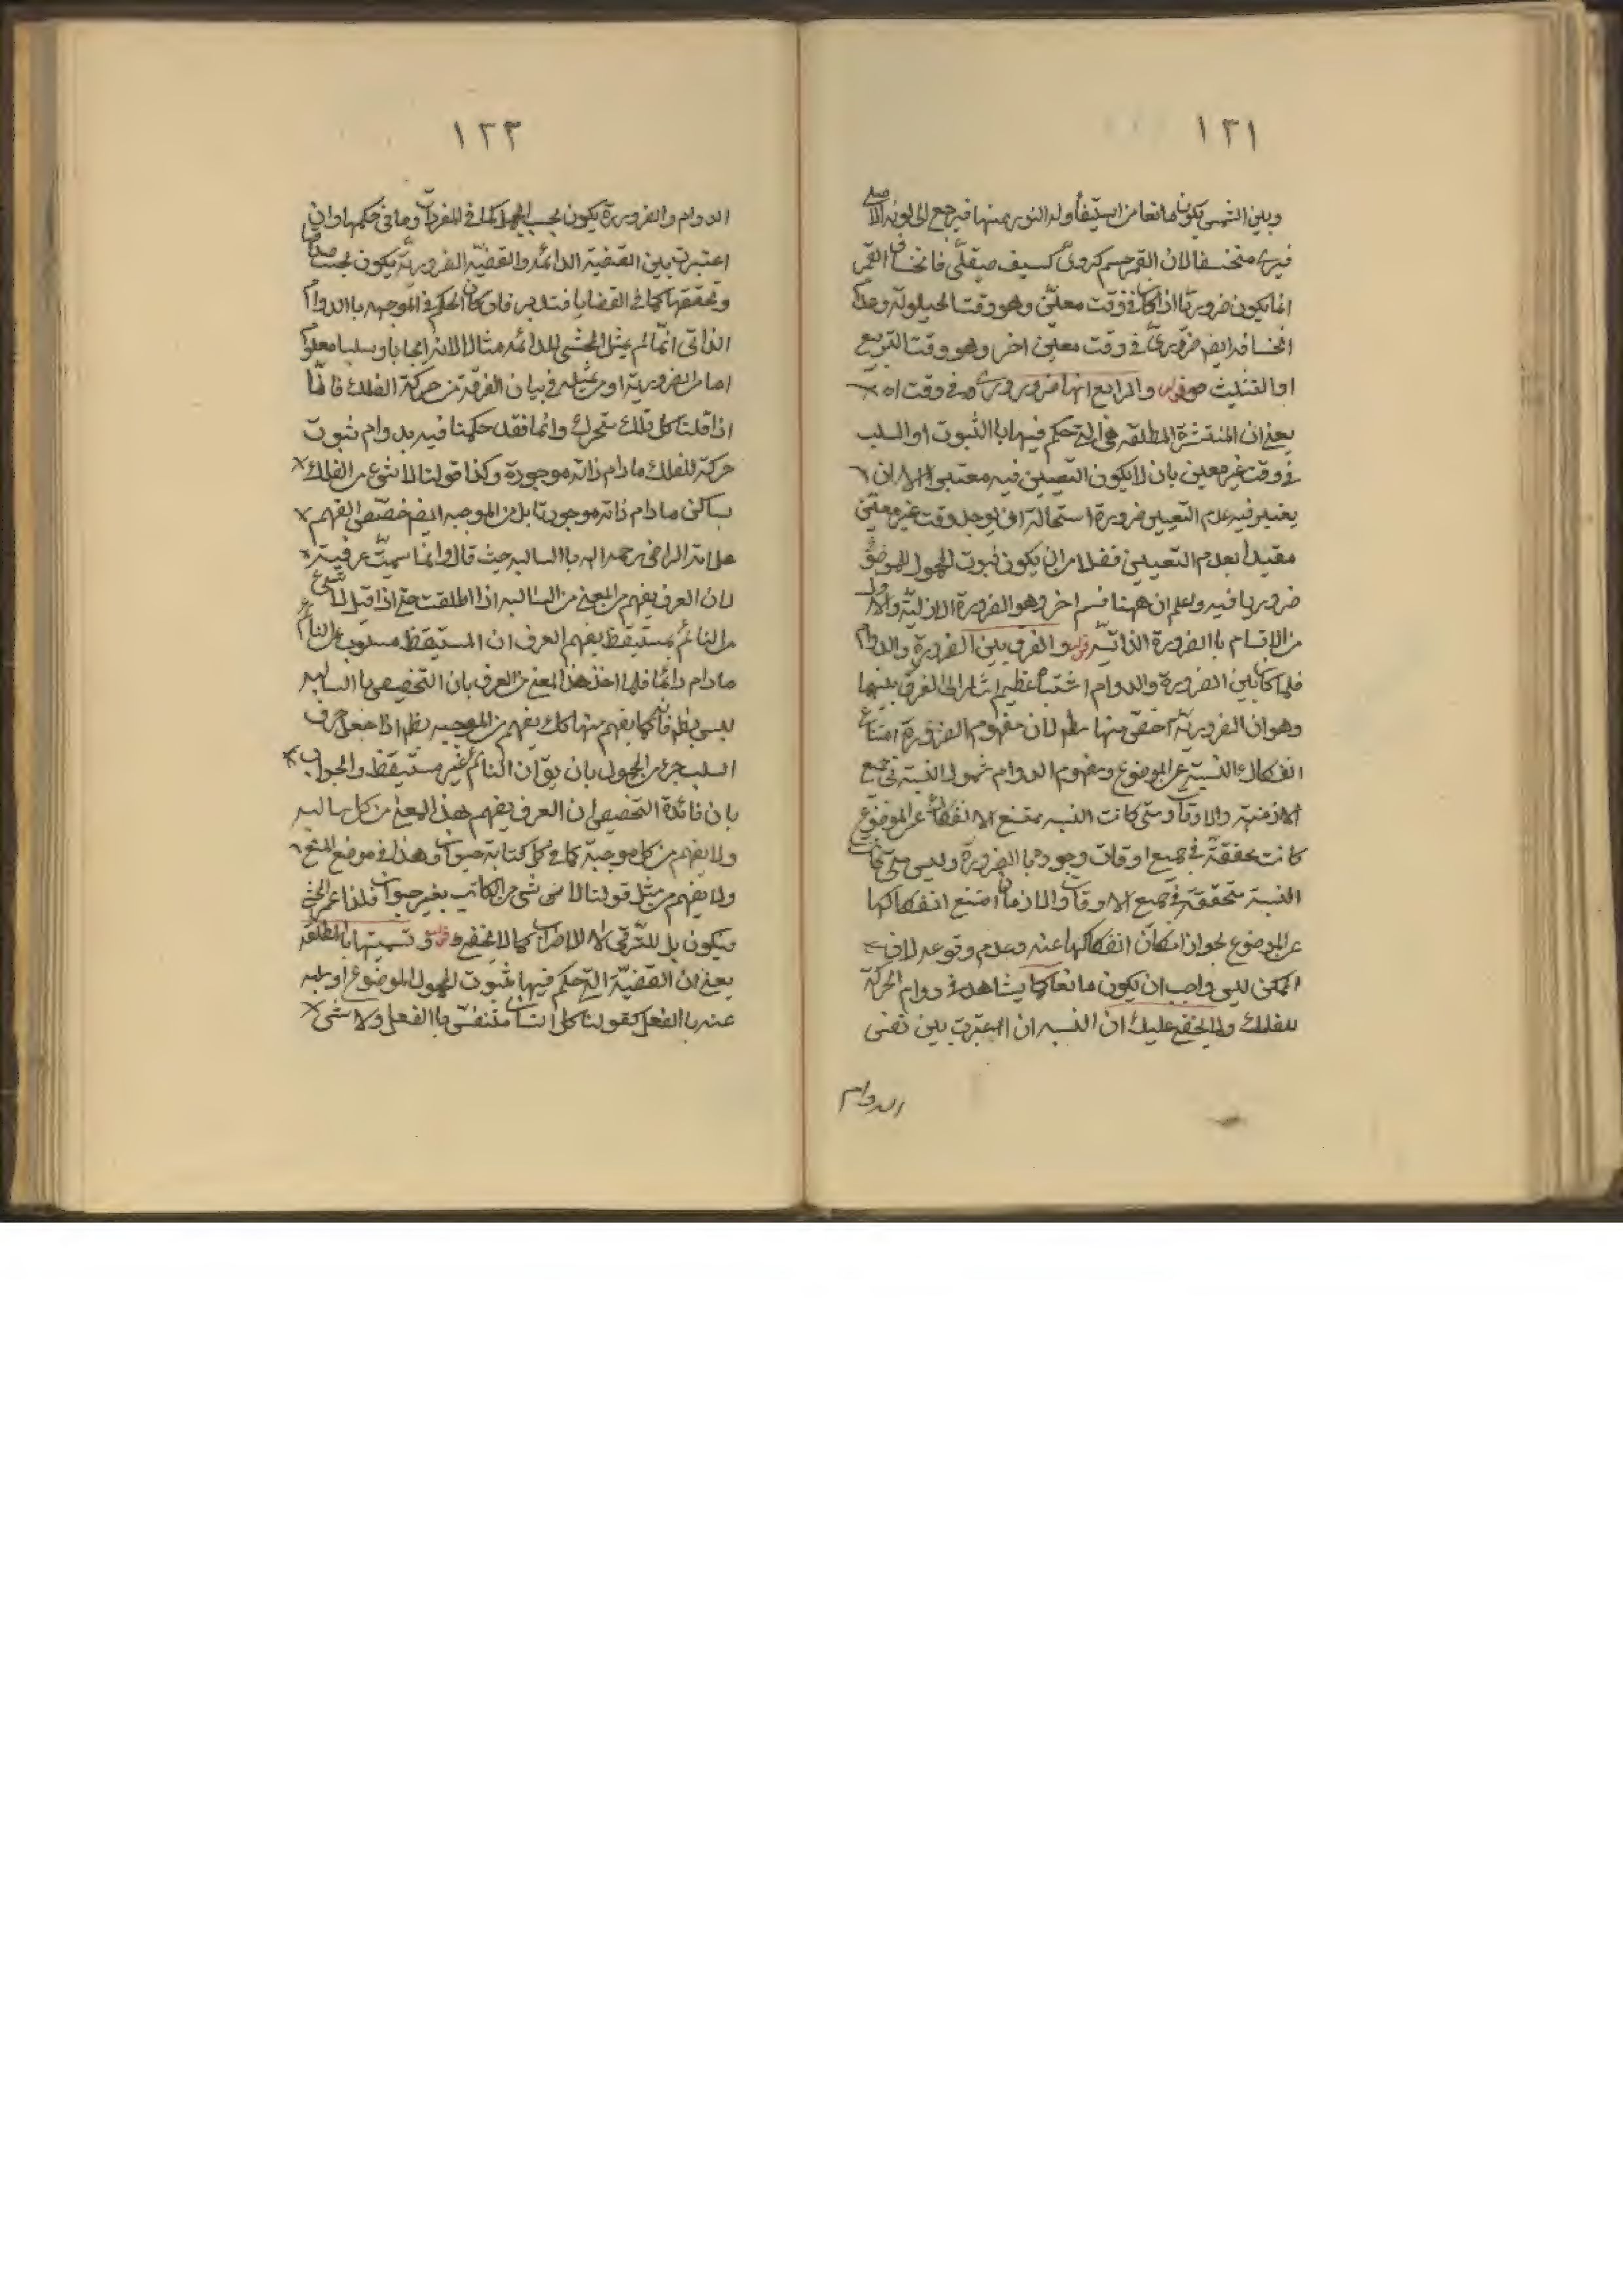 ١٢١
وبين الشمس يكون مانعا من استيفاوله النور منها فيرجع الى لونه الاصلى
فيرى منخسفا لان القمر جسم كروى كسيف صيقلى فانخساف القمر
انما يكون ضروريا اذا كان فى وقت معين وهو وقت الحيلولة وعدم
انخسافه ايضم ضرورى فى وقت معين اخر وهو وقت التربيع
او التثليث قوله والرابع انها ضرورى فى وقت اه
يعنى ان المنتشرة المطلقه هى التى حكم فيها باالثبوت او السلب
فى وقت غير معين بان لا يكون التعيين فيه معتبرا لا ان
يعتبر فيه عدم التعيين ضرورة استحالة ان يوجد وقت غير معين
مقيدا بعدم التعيين فضلا من ان يكون ثبوت المحمول للموضوع
ضروريا فيه واعلم ان ههنا قسم اخر وهو الضرورة الازلية والاول
من الاقسام باالضرورة الذاتية قوله والفرق بين الضرورة والدوام
فلما كان بين الضرورة والدوام اشتباه عظيم اشار الى الفرق بينهما
وهو ان الضرورية اخص منها مطم لان مفهوم الضرورة امتناع
انفكاك النسبة عن الموضوع ومفهوم الدوام شمول النسبة فى جميع
الازمنة والاوقات ومتى كانت النسبه ممتنع الانفكاك عن الموضوع
كانت محققة فى جميع اوقات وجودها بالضرورة وليس متى كانت
النسبة متحققة فى جميع الاوقات والازمان امتنع انفكاكها
عن الموضوع لجواز امكان انفكاكها عنه وعدم وقوعه لان
الممكن ليس واجب ان يكون مانعا كما يشاهد فى دوام الحركة
للفلك ولا يخفى عليك ان النسبه ان اعتبرت بين نفس
الدوام
١٢٢
الدوام والضرورة يكون بحسب الحمل كما فى المفردات وما فى حكمها وان
اعتبرت بين القضية الدائمه والقضية الضرورية يكون بحسب صدقها
وتحققها كما فى القضايا فتدبر فان كان الحكم فى الموجهه باالدوام
الذاتى انما لم يمثل المحشى للدائمه مثالا لانه ايجابا وسلبا معلوم
اما من الضرورية او من تمثيله فى بيان الفرق من حركة الفلك فانا
اذا قلنا كل فلك متحرك دائما فقد حكمنا فيه بدوام ثبوت
حركة للفلك مادام ذاته موجودة وكذا قولنا لا شئ من الفلك
بساكن مادام ذاته موجودتا بل من الموجبه ايضم خصص الفهم
علامة الرازى رحمه الله باالسالبه حيث قال وانما سميت عرفية
لان العرف يفهم من المعنى من السالبه اذا اطلقت حتى اذا قيل لا شئ
من النائم بمستيقظ يفهم العرف ان المستيقظ مسلوب عن النائم
مادام نائما فلما اخذ هذا المعنى من العرف بان التخصيص باالسالبه
ليس بظم فانه كما يفهم منها كك يفهم من الموجبه بظم اذا جعل حرف
السلب جزء من المحمول بان يق ان النائم غير مستيقظ والجواب
بان فائدة التخصيص ان العرف يفهم هذا المعنى من كل سالبه
ولا يفهم من كل موجبة كما فى كل كتابة حيوان وهذا فى موضع المنع
ولا يفهم من مثل قولنا لا شئ من الكاتب بغير حيوان فلذا عمم المحشى
ويكون بل للترقى لا للاضراب كما لا يخفى قوله وتسميتها باالمطلقة
يعنى ان القضية التى حكم فيها بثبوت المحمول الموضوع او سلبه
عنه باالفعل كقولنا كل انسان متنفس باالفعل ولا شئ